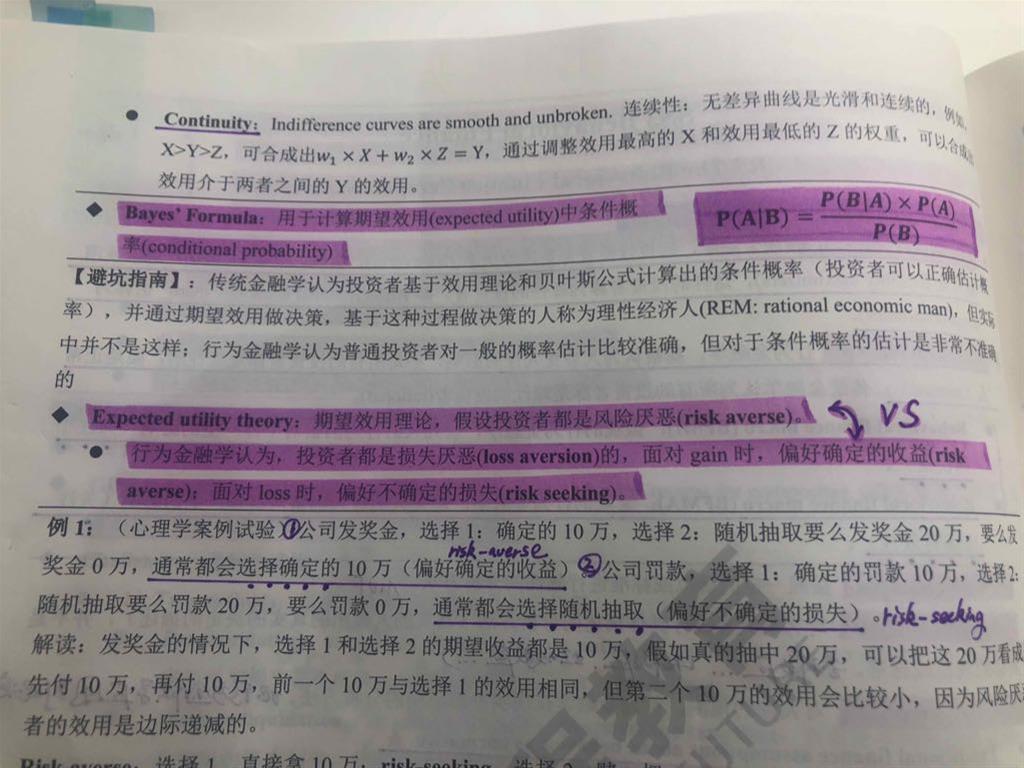 ● Continuity: Indifference curves are smooth and unbroken. 连续性：无差异曲线是光滑和连续的，例如，
X>Y>Z，可合成出w₁ × X + w₂ × Z = Y，通过调整效用最高的 X 和效用最低的 Z 的权重，可以合成
效用介于两者之间的 Y 的效用。
◆ Bayes' Formula：用于计算期望效用(expected utility)中条件概
率(conditional probability)
P(A|B) = P(B|A) × P(A) / P(B)
【避坑指南】：传统金融学认为投资者基于效用理论和贝叶斯公式计算出的条件概率（投资者可以正确估计概
率），并通过期望效用做决策，基于这种过程做决策的人称为理性经济人(REM: rational economic man)，但实际
中并不是这样；行为金融学认为普通投资者对一般的概率估计比较准确，但对于条件概率的估计是非常不准确
的
◆ Expected utility theory：期望效用理论，假设投资者都是风险厌恶(risk averse)。 VS
● 行为金融学认为，投资者都是损失厌恶(loss aversion)的，面对 gain 时，偏好确定的收益(risk
averse)；面对 loss 时，偏好不确定的损失(risk seeking)。
例 1：（心理学案例试验）①公司发奖金，选择 1：确定的 10 万，选择 2：随机抽取要么发奖金 20 万，要么发
risk-averse
奖金 0 万，通常都会选择确定的 10 万（偏好确定的收益）②公司罚款，选择 1：确定的罚款 10 万，选择 2：
随机抽取要么罚款 20 万，要么罚款 0 万，通常都会选择随机抽取（偏好不确定的损失）。risk-seeking
解读：发奖金的情况下，选择 1 和选择 2 的期望收益都是 10 万，假如真的抽中 20 万，可以把这 20 万看成
先付 10 万，再付 10 万，前一个 10 万与选择 1 的效用相同，但第二个 10 万的效用会比较小，因为风险厌
者的效用是边际递减的。
Risk-averse：选择 1，直接拿 10 万；risk-seeking